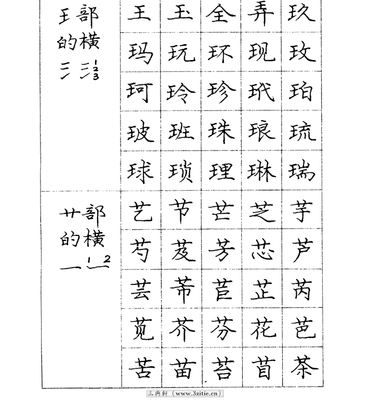 王部的横
三 三123
王玉全弄玖
玛玩环现玫
珂玲珍玳珀
玻班珠琅琉
球琐理琳瑞
艹部的横
一 一12
艺节芒芝芋
芍芨芳芯芦
芸芾苣芷芮
苋芥芬花芭
苦苗苔苜茶
三典轩〔www.3zitie.cn〕